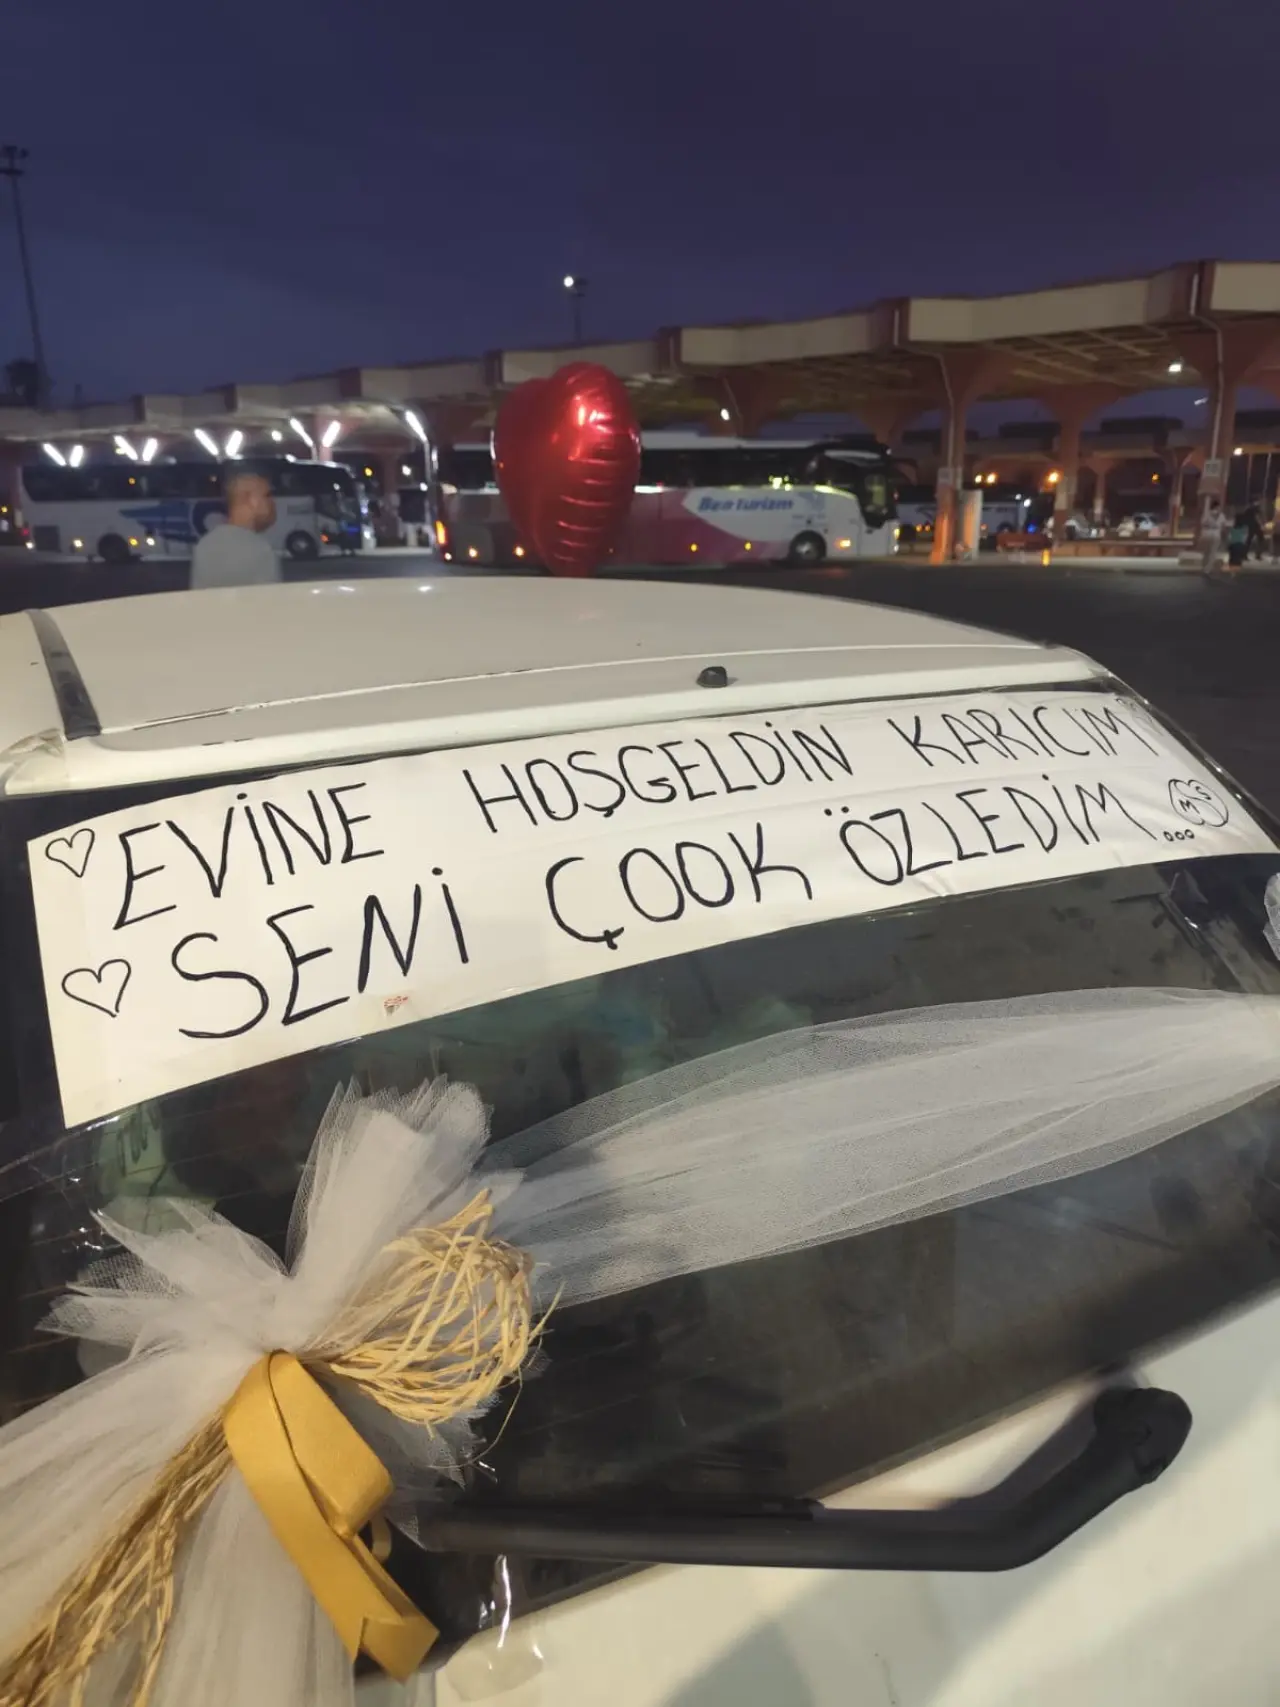 Ben Turizm
EVİNE HOŞGELDİN KARICIM
SENİ ÇOOK ÖZLEDİM...
M S